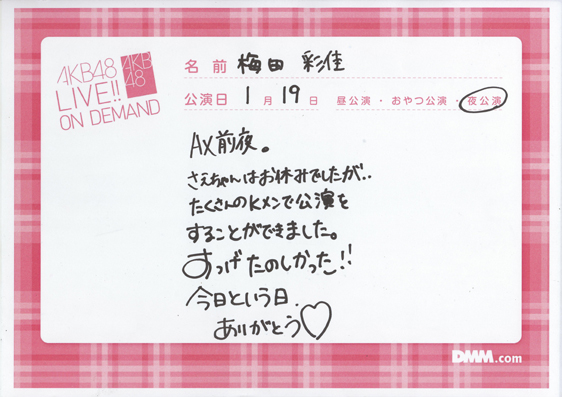 AKB48
LIVE!!
ON DEMAND
AKB
48
名前 梅田 彩佳
公演日 1月19日 昼公演・おやつ公演・夜公演
AX前夜。
さえちゃんはお休みでしたが..
たくさんのKメンで公演を
することができました。
すっげたのしかった!!
今日という日.
ありがとう♡
DMM.com